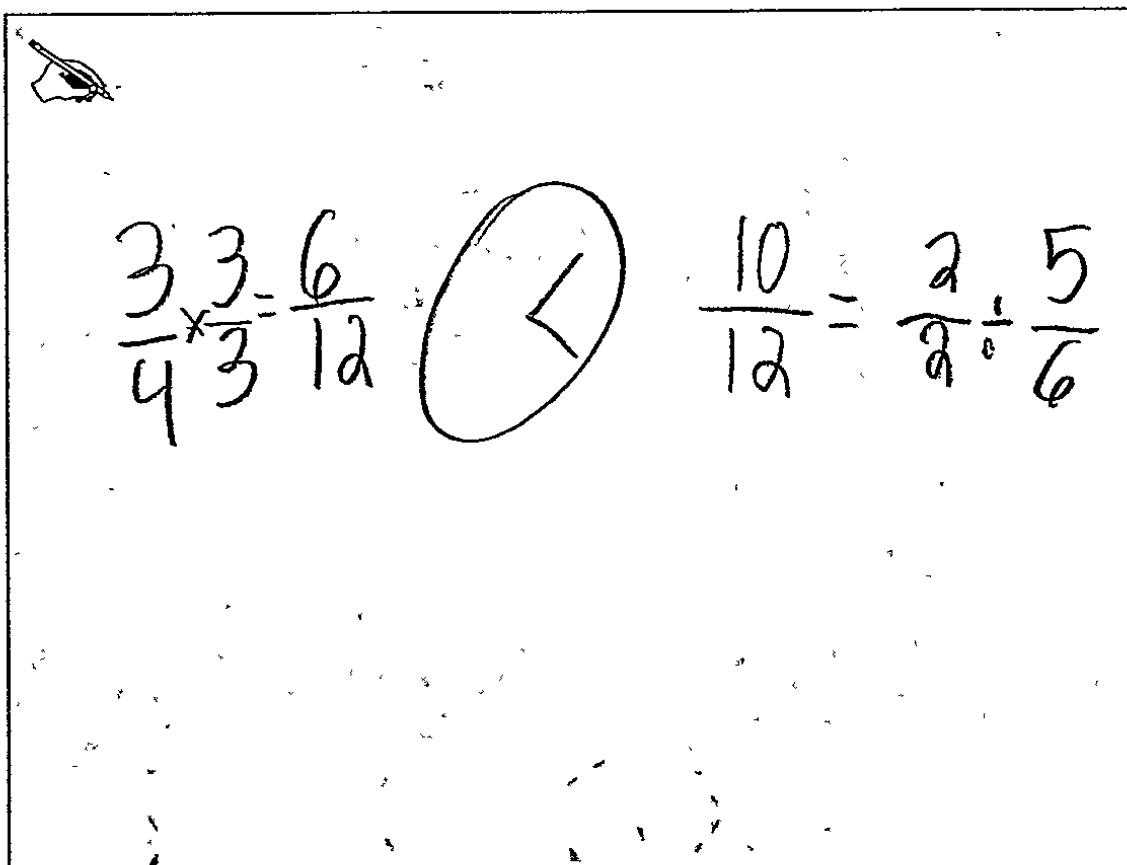 3/4 × 3/3 = 6/12 < 10/12 = 2/2 ÷ 5/6